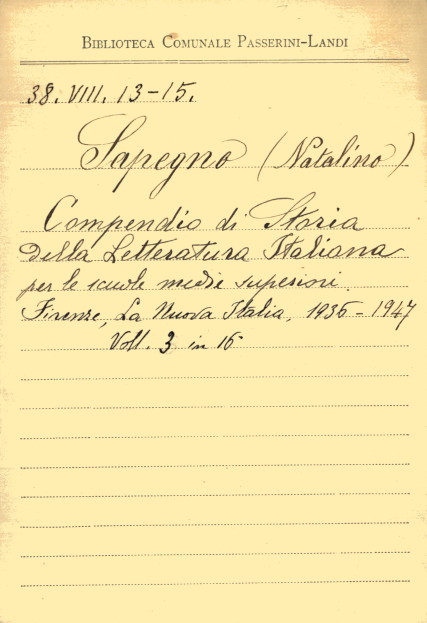 BIBLIOTECA COMUNALE PASSERINI-LANDI
38. VIII. 13-15.
Sapegno (Natalino)
Compendio di Storia
della Letteratura Italiana
per le scuole medie superiori.
Firenze, La Nuova Italia, 1936-1947
Voll. 3 in 16°